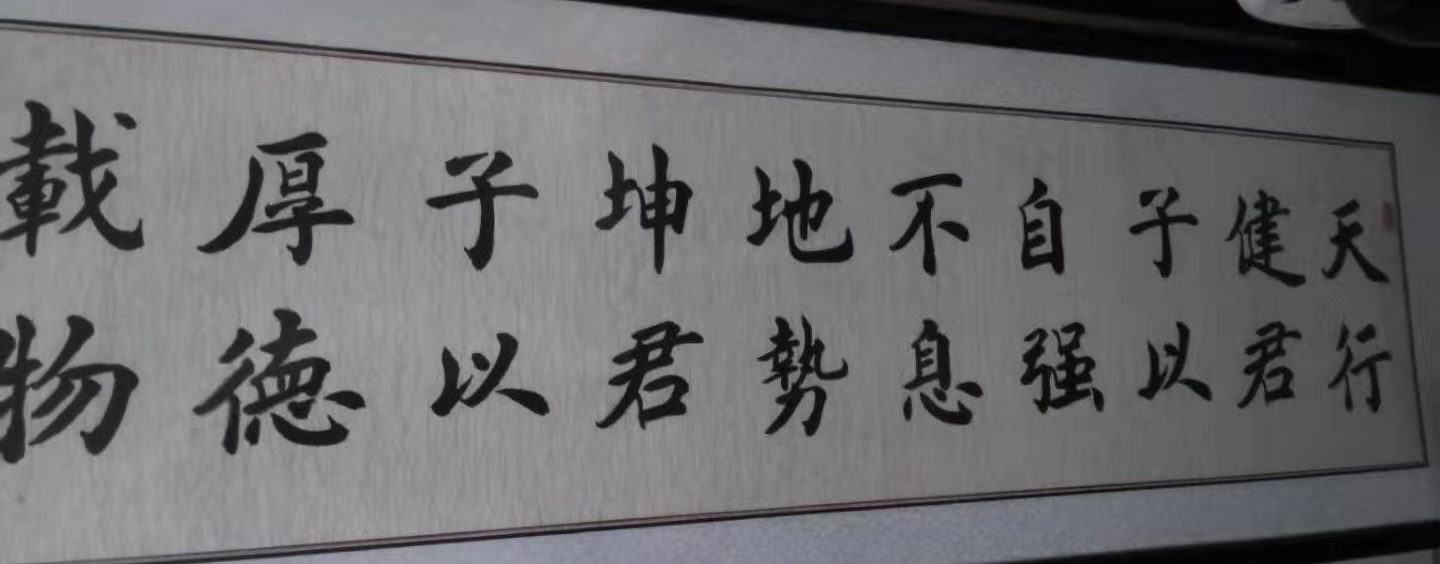 天行
健君
子以
自强
不息
地势
坤君
子以
厚德
載物